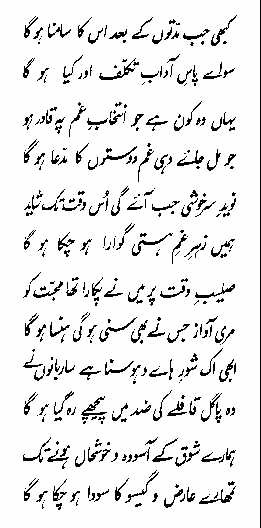 کبھی جب مدتوں کے بعد اس کا سامنا ہو گا
سوائے پاسِ آدابِ تکلّف اور کیا ہو گا
یہاں وہ کون ہے جو انتخابِ غم پہ قادر ہو
جو مل جائے وہی غم دوستوں کا مدّعا ہو گا
نویدِ سرخوشی جب آئے گی اُس وقت تک شاید
ہمیں زہرِ غمِ ہستی گوارا ہو چکا ہو گا
صلیبِ وقت پر میں نے پکارا تھا محبت کو
مری آواز جس نے بھی سنی ہو گی ہنسا ہو گا
ابھی اک شورِ ہاے و ہو سنا ہے ساربانوں نے
وہ پاگل قافلے کی ضد میں پیچھے رہ گیا ہو گا
ہمارے شوق کے آسودہ و خوشحال ہونے تک
تمھارے عارض و گیسو کا سودا ہو چکا ہو گا